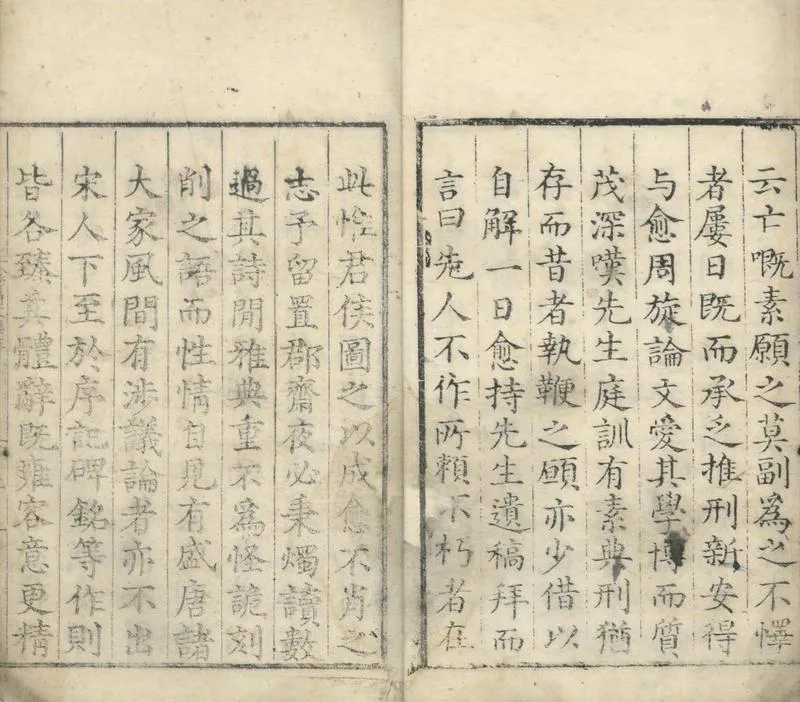 云亡嘅素願之莫副為之不懌
者屢日既而承乏推刑新安得
与愈周旋論文愛其學博而質
茂深嘆先生庭訓有素典刑猶
存而昔者執鞭之願亦少借以
自解一日愈持先生遺稿拜而
言曰先人不作所賴不朽者在
此惟君侯圖之以成愈不肖之
志予留置郡齋夜必秉燭讀數
過其詩閒雅典重不為怪詭刻
削之語而性情自見有盛唐諸
大家風間有涉議論者亦不出
宋人下至於序記碑銘等作則
皆各臻其體辭既雍容意更精